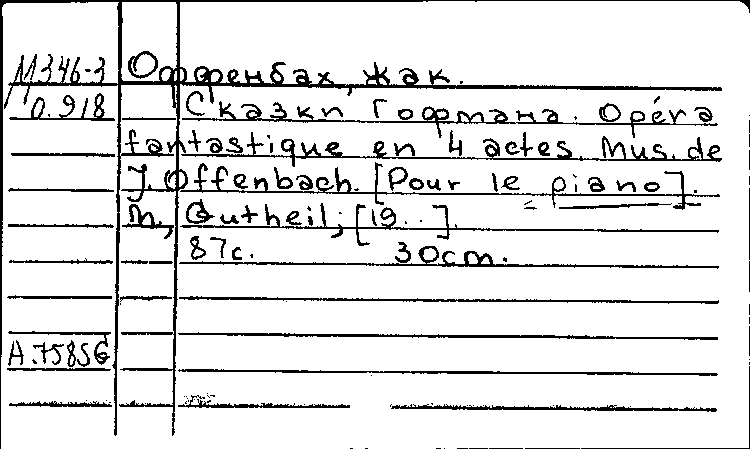 М346-3 Оффенбах, Жак.
0.918 Сказки Гофмана. Opéra
fantastique en 4 actes. Mus. de
J. Offenbach. [Pour le piano].
M., Gutheil, [19..].
87с. 30cm.
A.75856